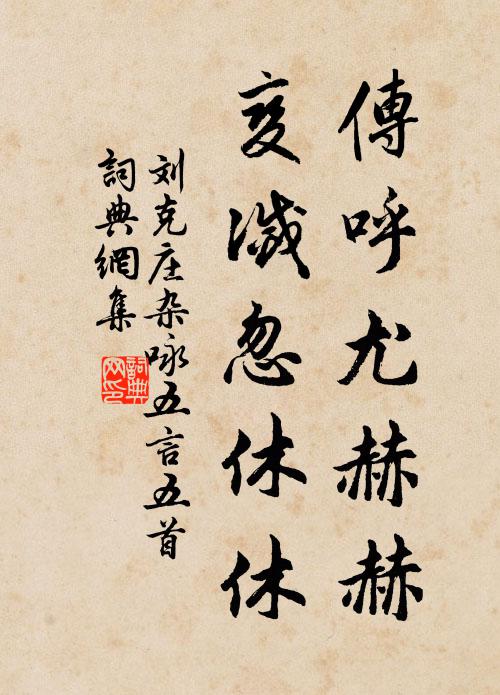 傳呼尤赫赫
变滅忽休休
刘克庄杂咏五言五首
詞典網集
詞典
网印